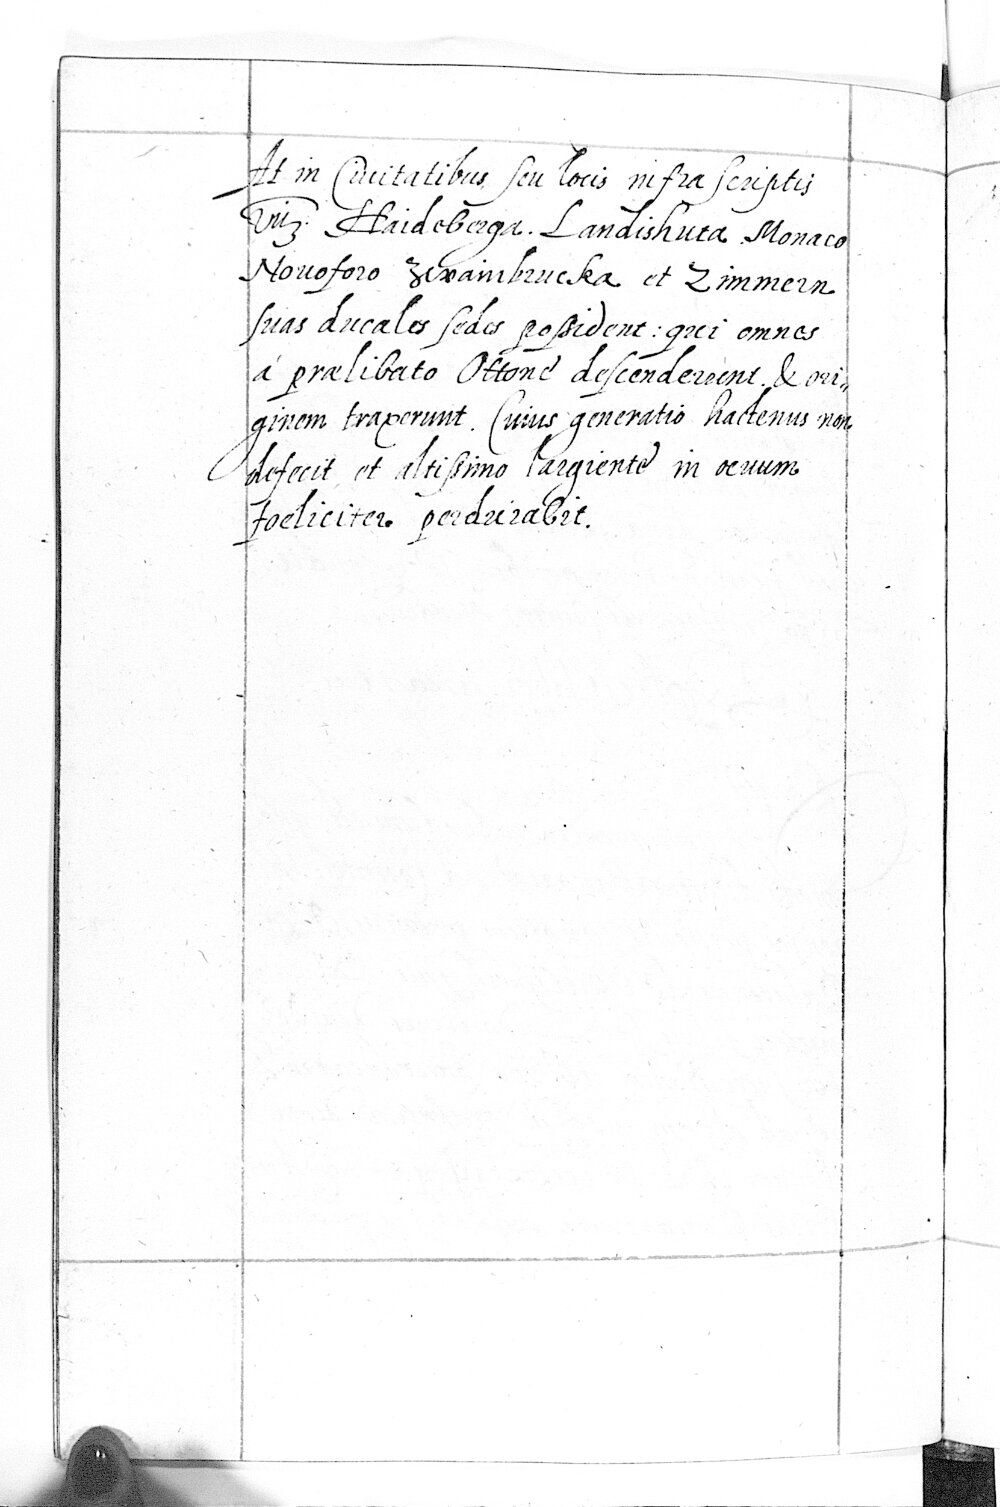 At in Ciuitatibus seu locis infra scriptis
Viz. Haideberga. Landishuta. Monaco
Nouoforo Zwainbrucka et Zimmern
suas ducales sedes possident: qui omnes
á prælibato Ottone descenderunt. & ori„
ginem traxerunt. Cuius generatio hactenus non
defecit, et altissimo largiente in æuum
foeliciter perdurabit.